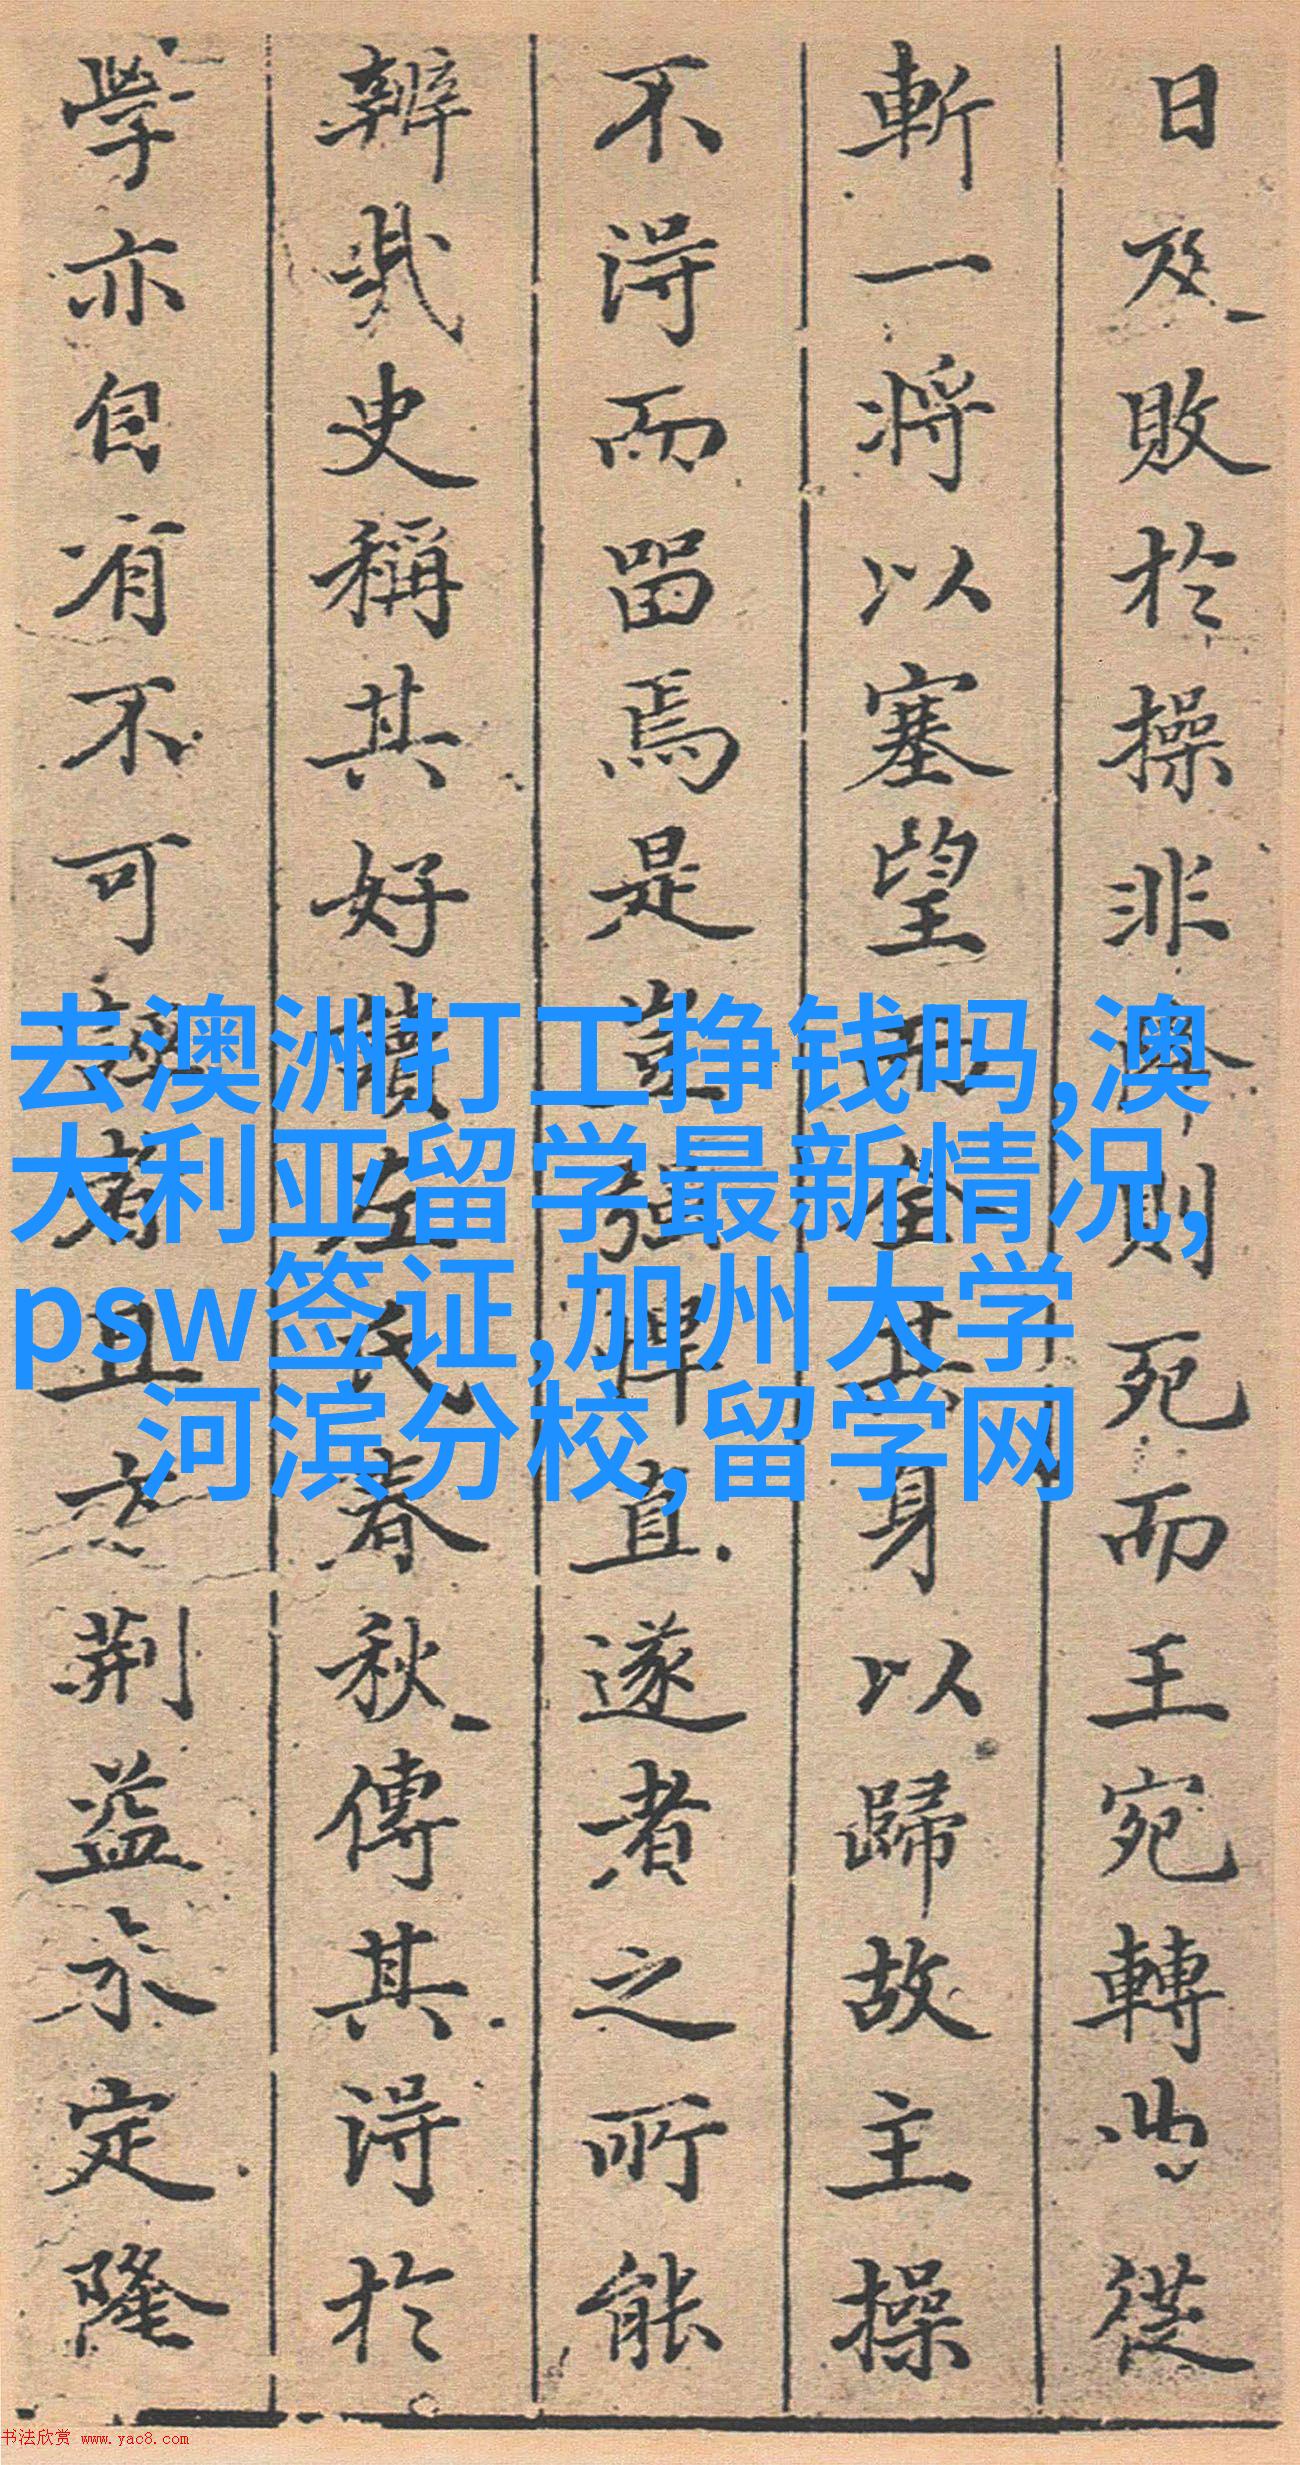 日及敗於操非奔則死而王宛轉曲從
斬一將以塞望而全其身以歸故主操
不得而留焉是豈強悍直遂者之所能
辨哉史稱其好讀左氏春秋傳其得於
學亦自有不可誣者且方荆益未定隆
去澳洲打工挣钱吗,澳
大利亚留学最新情况,
psw签证,加州大学
河滨分校,留学网
书法欣赏 www.yac8.com